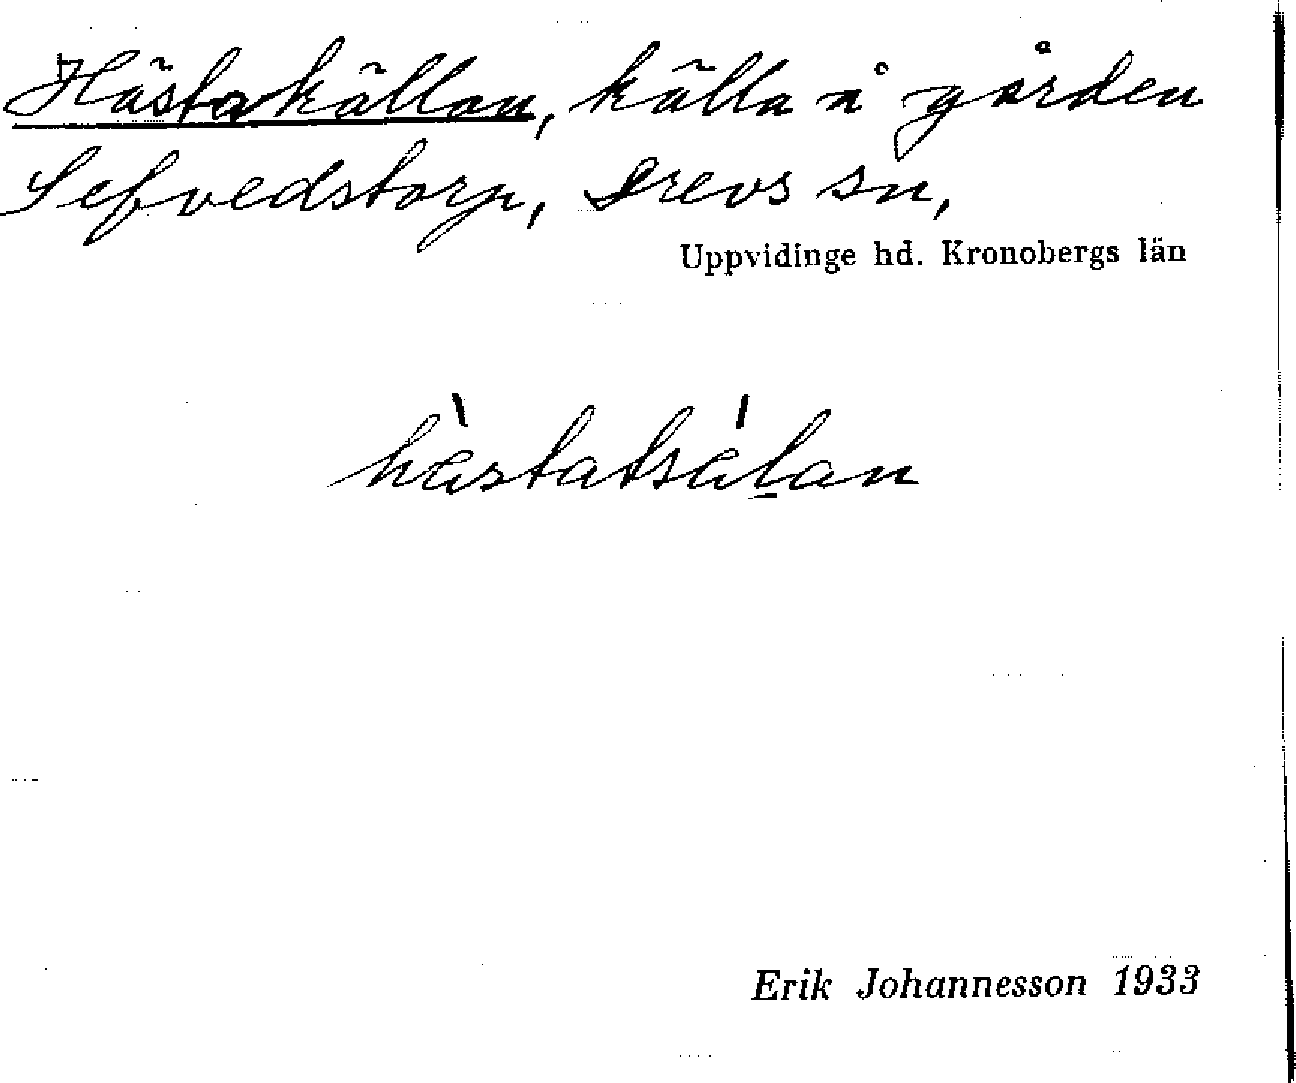 Hästakällan, källa å gården
Sefvedstorp, Drevs sn,
Uppvidinge hd. Kronobergs län
hæ̀statsǽlan
Erik Johannesson 1933